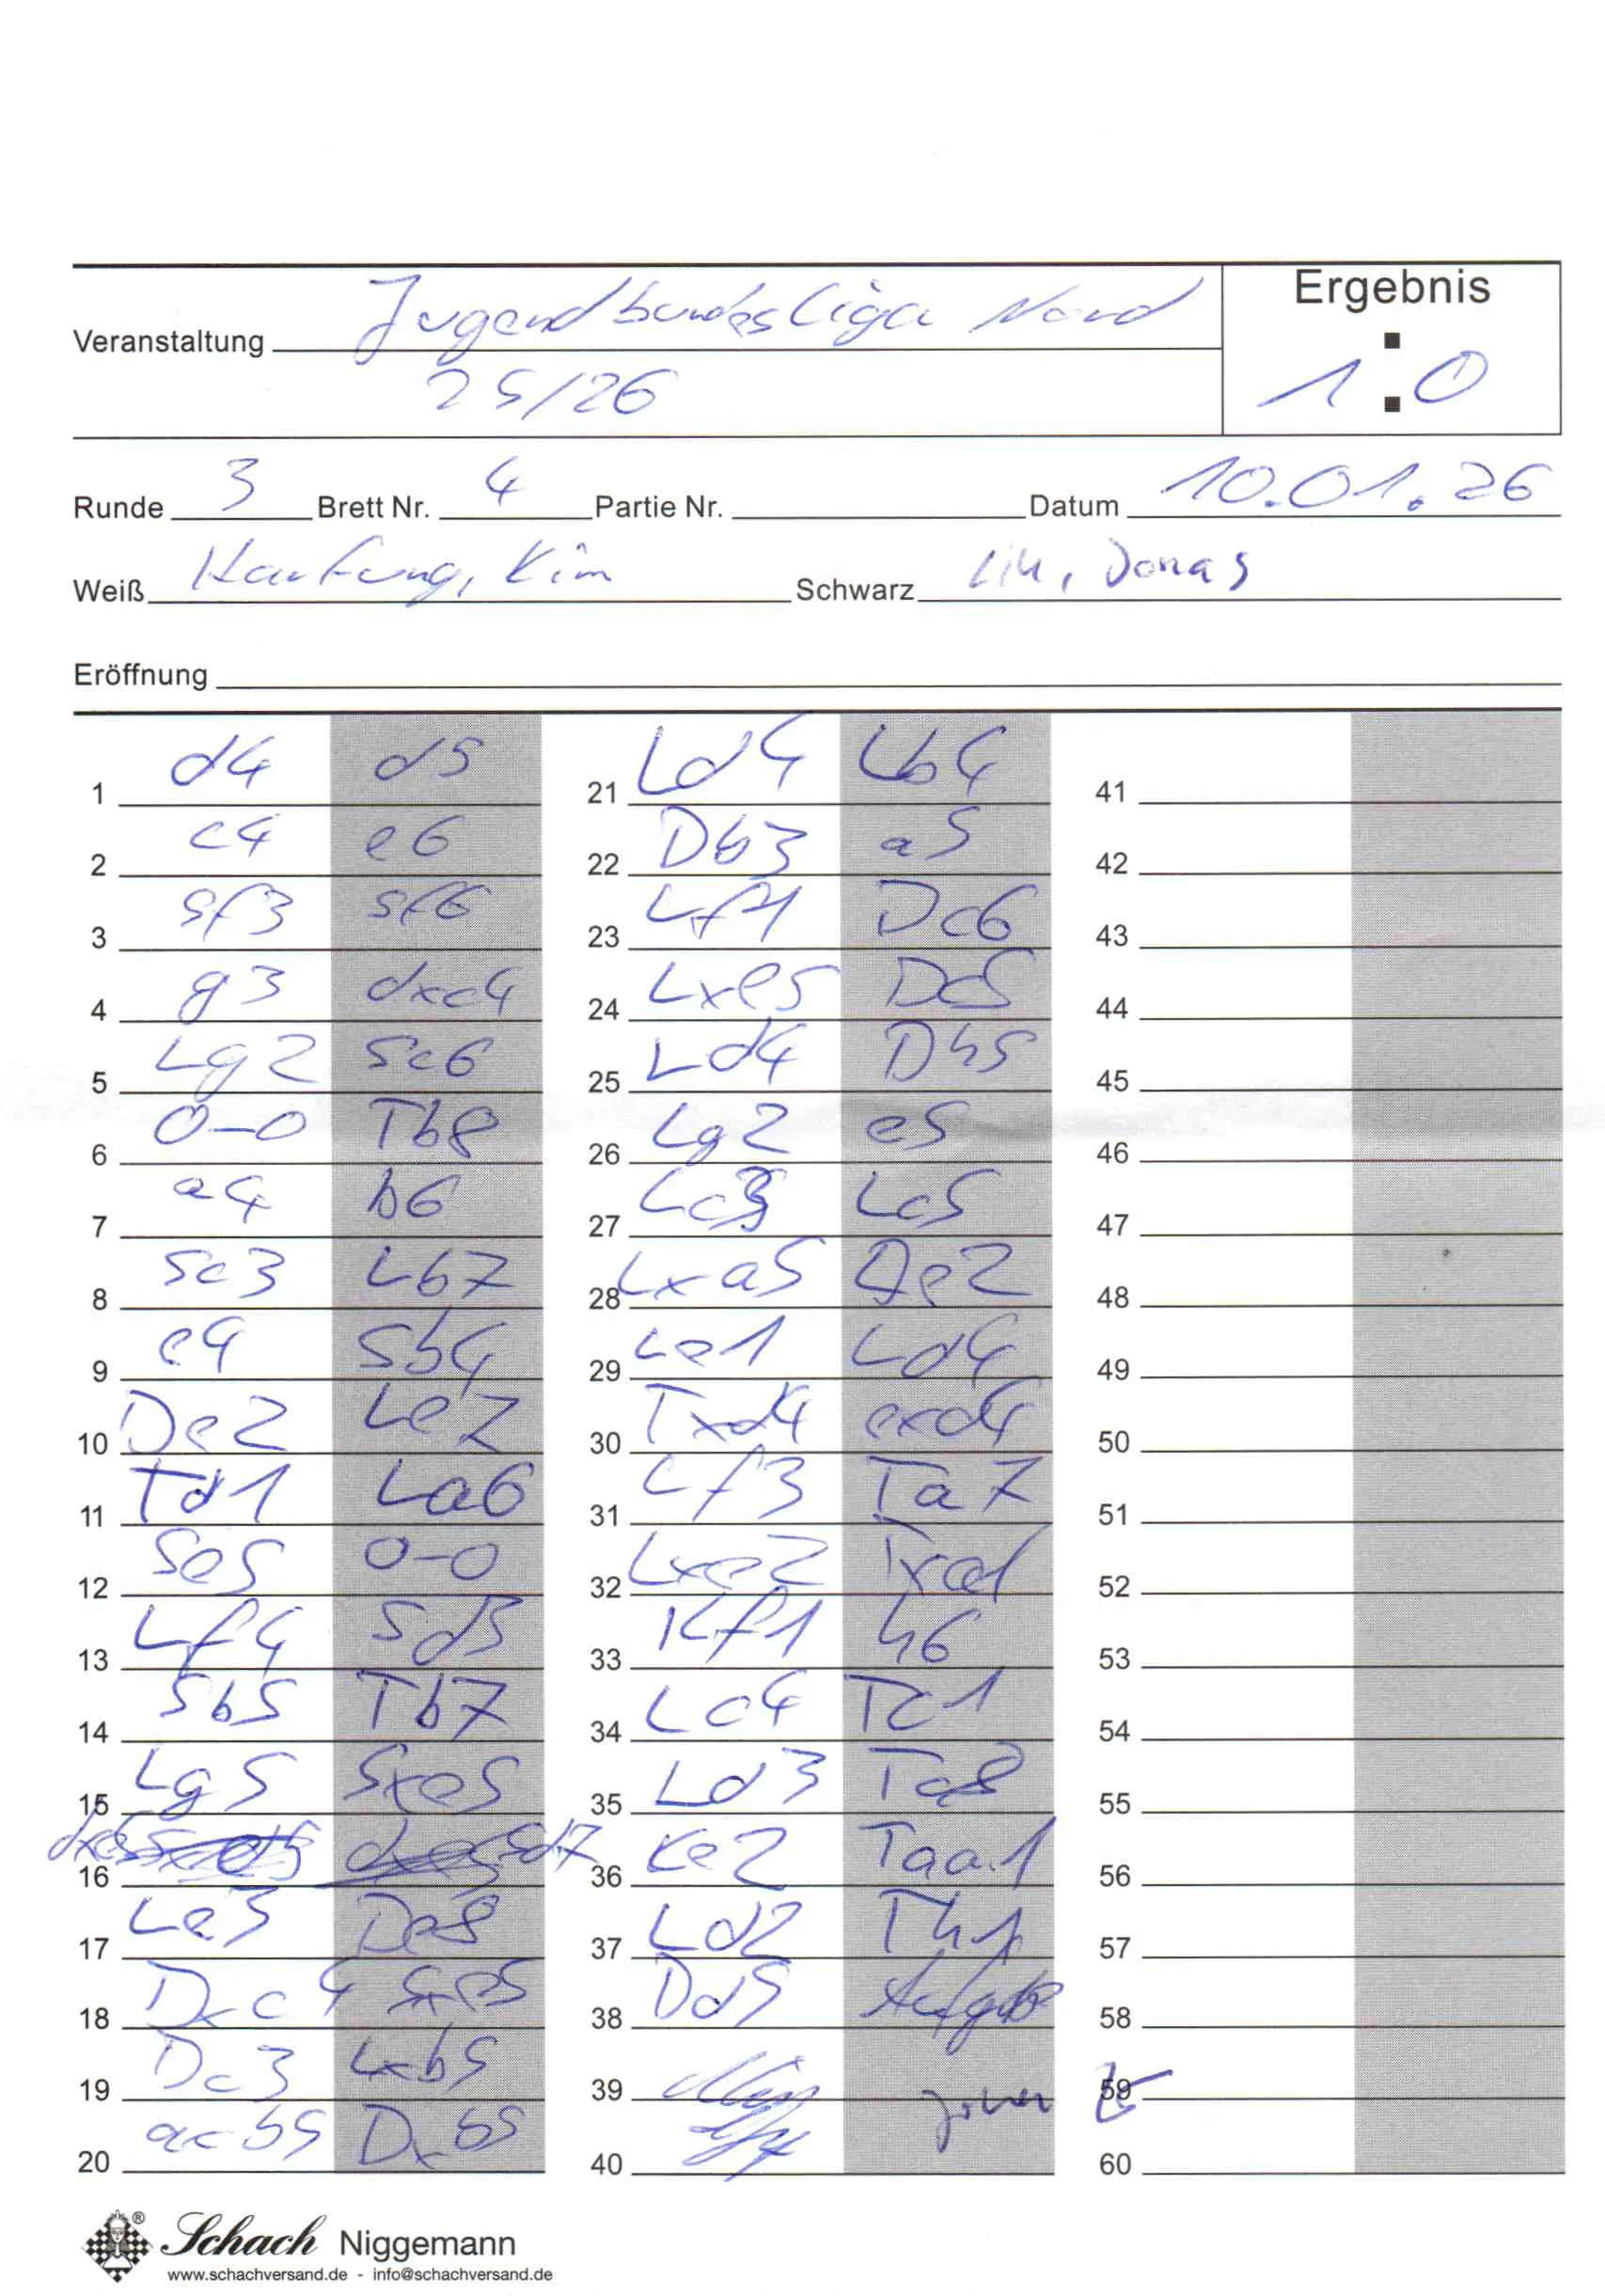 Ergebnis
Veranstaltung Jugendbundesliga Nord
25/26
1:0
Runde 3 Brett Nr. 4 Partie Nr. Datum 10.01.26
Weiß Kim Schwarz Liu, Jonas
Eröffnung
1 d4 d5 21 Ld4 Lb4 41
2 c4 e6 22 Db3 a5 42
3 Sf3 Sf6 23 Lf1 Dc6 43
4 g3 dxc4 24 Lxe5 Dc5 44
5 Lg2 Sc6 25 Ld4 Dh5 45
6 0-0 Tb8 26 Lg2 e5 46
7 a4 b6 27 Lc3 Lc5 47
8 Sc3 Lb7 28 Lxa5 De2 48
9 e4 Sb4 29 Le1 Ld4 49
10 De2 Le7 30 Txd4 exd4 50
11 Td1 La6 31 Lf3 Ta7 51
12 Se5 0-0 32 Lxe2 Txa1 52
13 Lf4 Sd3 33 Kf1 h6 53
14 Sb5 Tb7 34 Lc4 Tc1 54
15 Lg5 Sxe5 35 Ld3 Ta8 55
16 dxe5 Sd7 36 Ke2 Taa1 56
17 Le3 Da8 37 Ld2 Th1 57
18 Dxc4 Sxe5 38 Dd5 Aufgabe 58
19 Dc3 Lxb5 39 59
20 axb5 Dxb5 40 60
Schach Niggemann
www.schachversand.de - info@schachversand.de